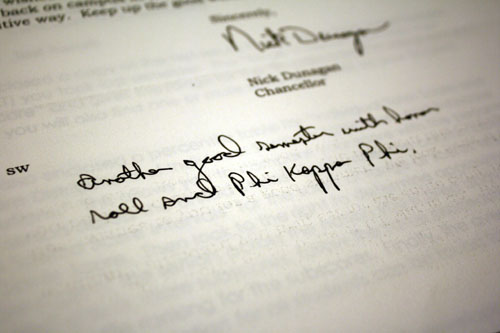 back on campus
itive way. Keep up the good
Sincerely,
Nick Dunagan
Nick Dunagan
Chancellor
sw
Another good semester with honor
roll and Phi Kappa Phi.